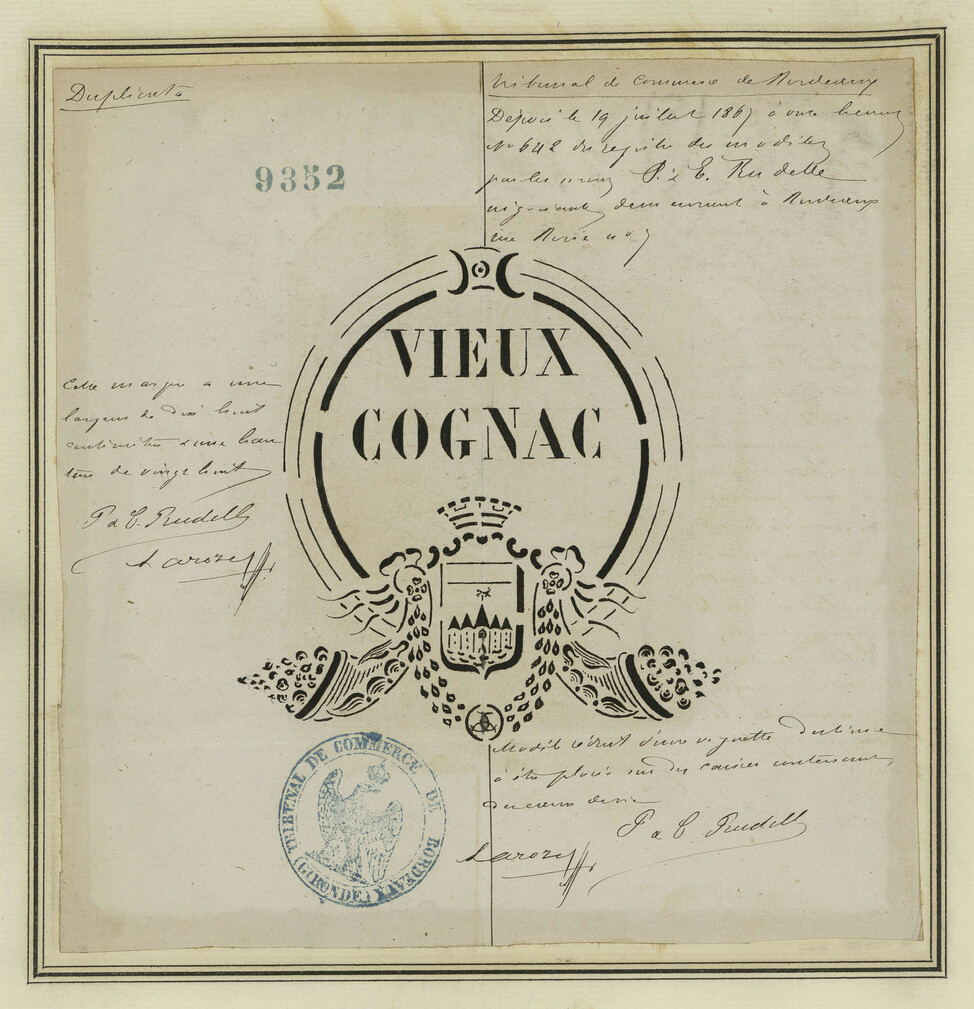 Duplicata
Tribunal de Commerce de Bordeaux
Déposé le 19 juillet 1867 à onze heures
No 642 du registre des modèles
par les sieurs P. & E. Rudelle
négociants demeurant à Bordeaux
rue Borie no 7
9352
VIEUX
COGNAC
Cette marque a une
largeur de dix huit
centimètres & une hau
teur de vingt huit
P & E. Rudelle
Laroze
Modèle réduit d'une vignette destinée
à être placée sur des caisses contenant
P & E Rudelle
Laroze
TRIBUNAL DE COMMERCE DE BORDEAUX
(GIRONDE)